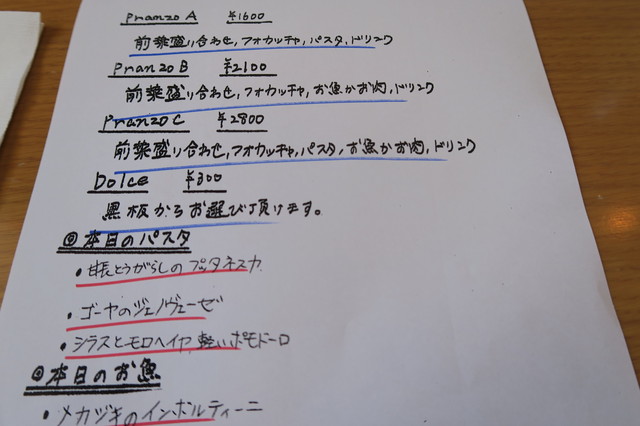 Pranzo A ¥1600
前菜盛り合わせ,フォカッチャ,パスタ,ドリンク
Pranzo B ¥2100
前菜盛り合わせ,フォカッチャ,お魚かお肉,ドリンク
Pranzo C ¥2800
前菜盛り合わせ,フォカッチャ,パスタ,お魚かお肉,ドリンク
Dolce ¥300
黒板からお選び頂けます。
◎本日のパスタ
・甘長とうがらしのプッタネスカ
・ゴーヤのジェノヴェーゼ
・シラスとモロヘイヤ,軽いポモドーロ
◎本日のお魚
・メカジキのインボルティーニ